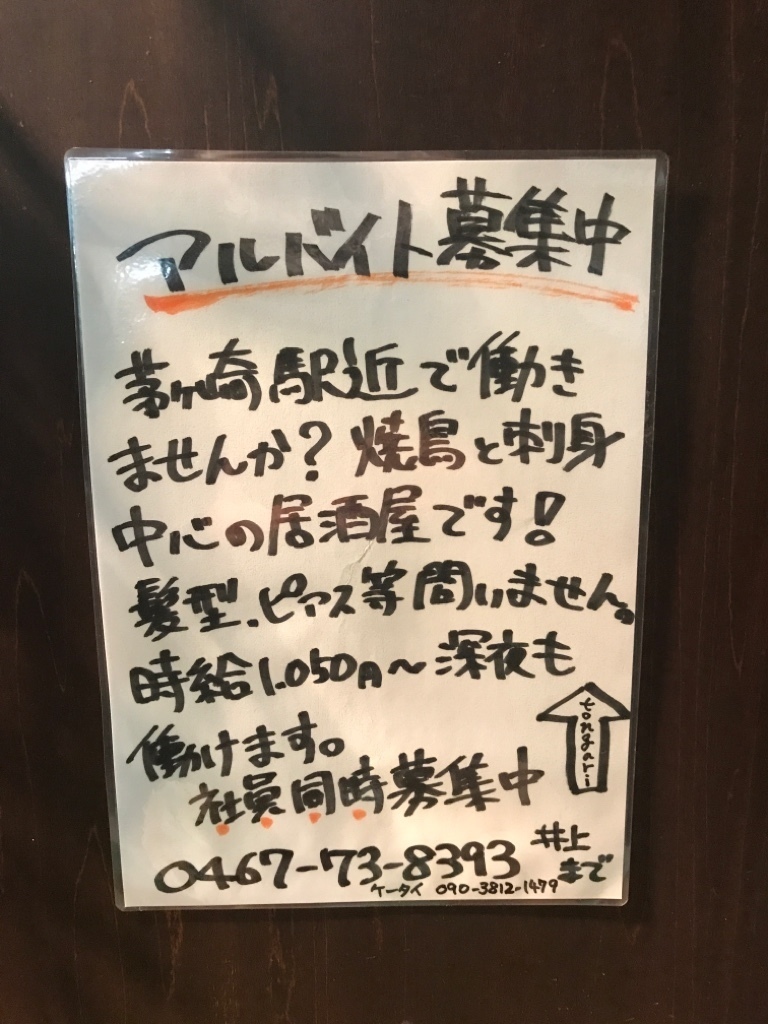 アルバイト募集中
茅ヶ崎駅近で働き
ませんか？焼鳥と刺身
中心の居酒屋です！
髪型、ピアス等問いません。
時給1.050円〜深夜も
働けます。
tongari
社員同時募集中
0467-73-8393 井上まで
ケータイ 090-3812-1479